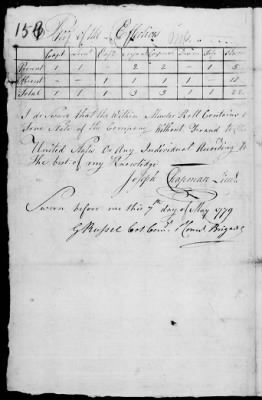 158 Proof of the Effectives
Capt Lieut Serjt Corpl Drum Fife
Present 1 2 2 1 5
Absent 1 1 1 1
Total 1 1 1 3 3 1 1 22
I do Swear that the Within Muster Roll Contains a
True State of the Company Without Fraud to the
United States Or Any Individual According To
The best of my Knowledge
Joseph Chapman Lieut
Sworn before me this 7th day of May 1779
G Russel